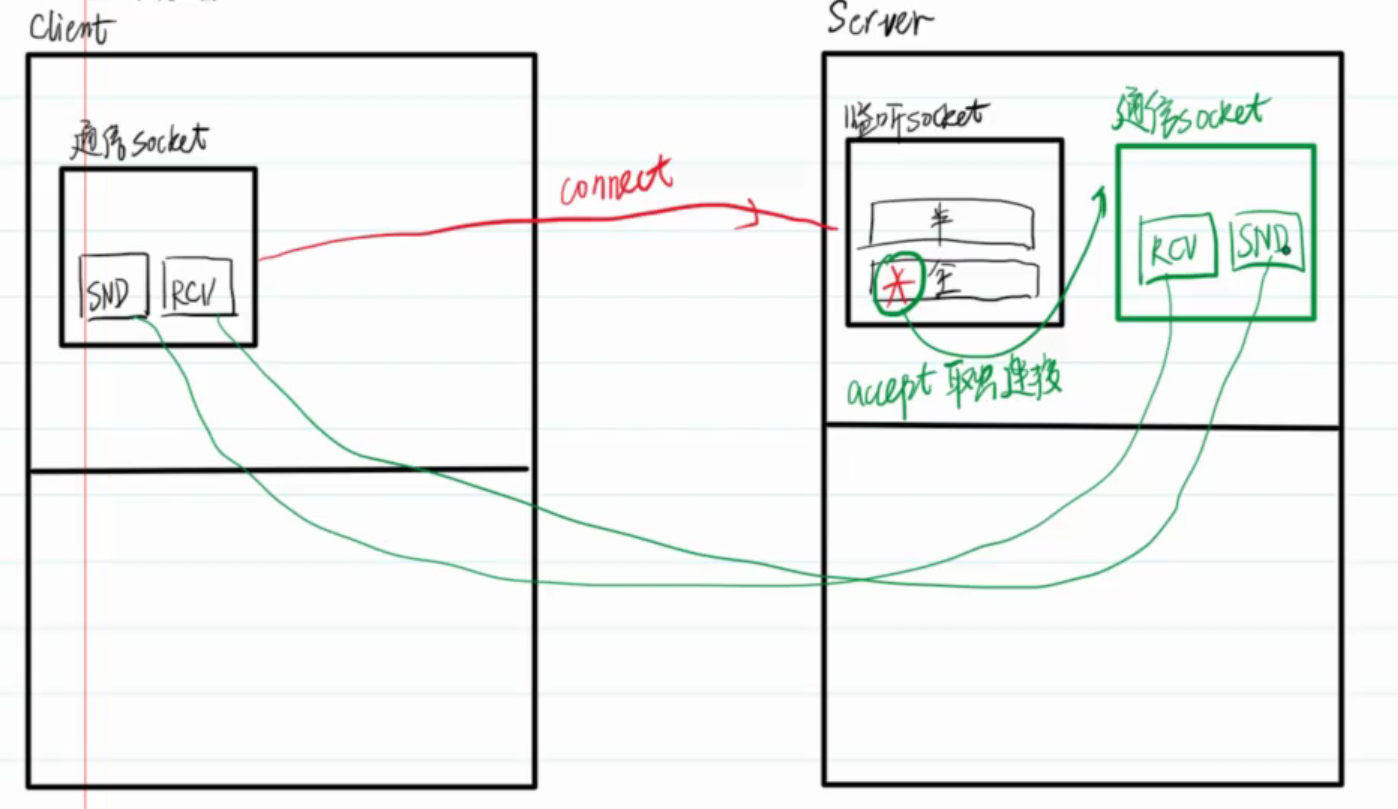 Client
Server
通信socket
SND
RCV
connect
监听socket
半
全
accept 取出连接
通信socket
RCV
SND